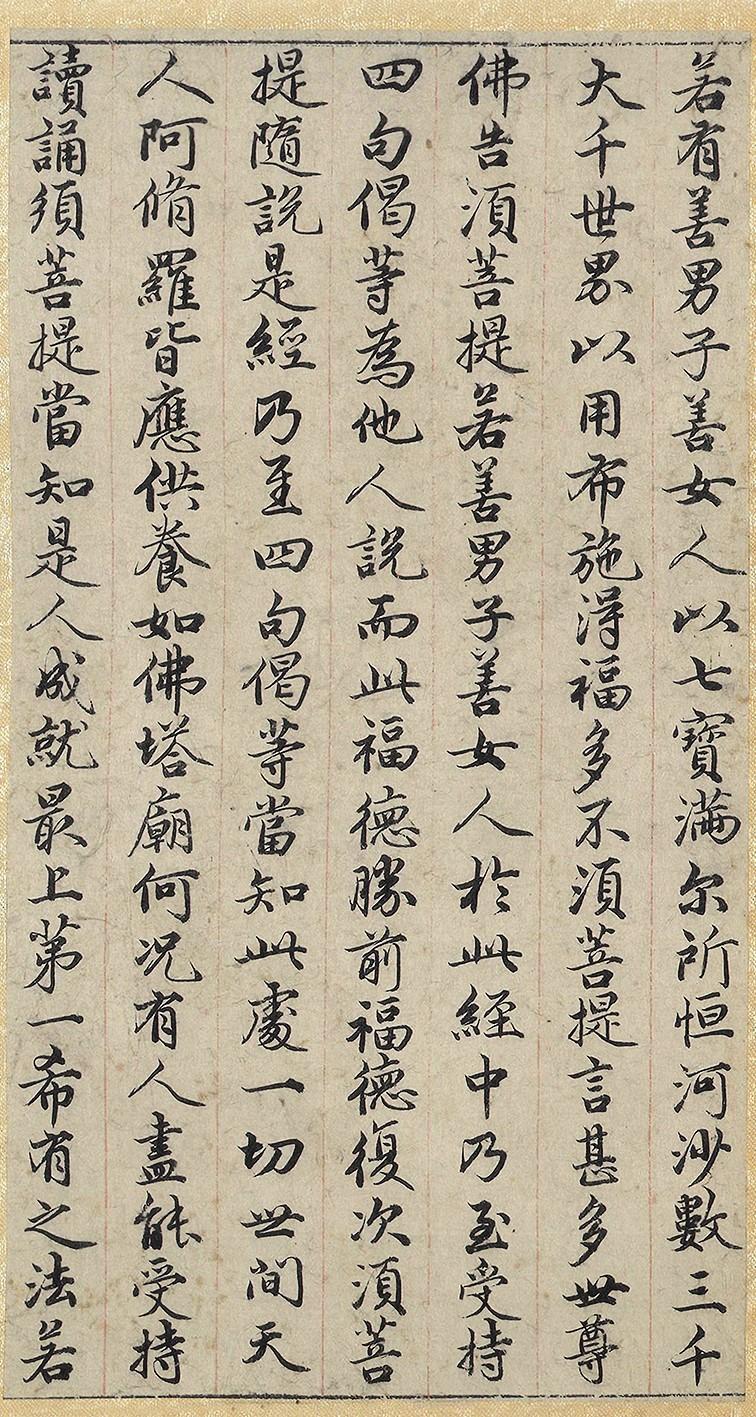 若有善男子善女人以七寶滿尔所恒河沙數三千
大千世界以用布施得福多不須菩提言甚多世尊
佛告須菩提若善男子善女人於此經中乃至受持
四句偈等為他人說而此福德勝前福德復次須菩
提隨說是經乃至四句偈等當知此處一切世間天
人阿脩羅皆應供養如佛塔廟何況有人盡能受持
讀誦須菩提當知是人成就最上第一希有之法若